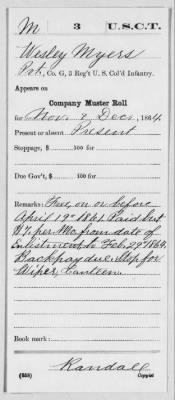 M 3 U.S.C.T.
Wesley Myers
Pvt., Co. G, 3 Reg't U. S. Col'd Infantry.
Appears on
Company Muster Roll
for Nov. & Dec., 1864.
Present or absent Present
Stoppage, $ 100 for
Due Gov't, $ 100 for
Remarks: Free on or before
April 19" 1861. Paid last
$7. per Mo. from date of
Enlistment to Feb. 29" 1864.
Back pay due. Stop for
Wiper, Canteen.
Book mark:
Randall
(358) Copyist.